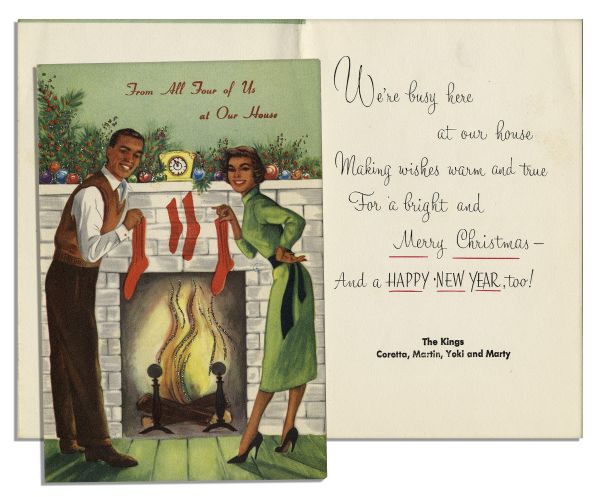 From All Four of Us
at Our House
We're busy here
at our house
Making wishes warm and true
For a bright and
Merry Christmas—
And a HAPPY NEW YEAR, too!
The Kings
Coretta, Martin, Yoki and Marty